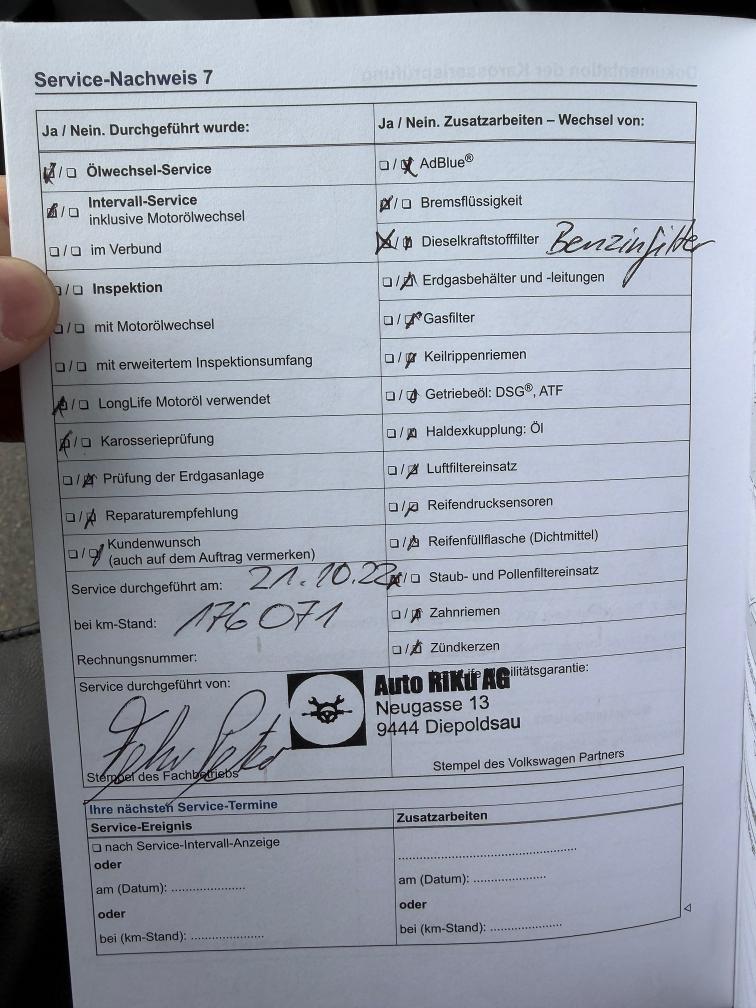 Service-Nachweis 7
Ja / Nein. Durchgeführt wurde:
Ölwechsel-Service
Intervall-Service
inklusive Motorölwechsel
im Verbund
Inspektion
mit Motorölwechsel
mit erweitertem Inspektionsumfang
LongLife Motoröl verwendet
Karosserieprüfung
Prüfung der Erdgasanlage
Reparaturempfehlung
Kundenwunsch
(auch auf dem Auftrag vermerken)
Service durchgeführt am: 21.10.22
bei km-Stand: 176071
Rechnungsnummer:
Service durchgeführt von:
Stempel des Fachbetriebs
Ja / Nein. Zusatzarbeiten – Wechsel von:
AdBlue®
Bremsflüssigkeit
Dieselkraftstofffilter Benzinfilter
Erdgasbehälter und -leitungen
Gasfilter
Keilrippenriemen
Getriebeöl: DSG®, ATF
Haldexkupplung: Öl
Luftfiltereinsatz
Reifendrucksensoren
Reifenfüllflasche (Dichtmittel)
Staub- und Pollenfiltereinsatz
Zahnriemen
Zündkerzen
Auto RiKu AG
Neugasse 13
9444 Diepoldsau
Stempel des Volkswagen Partners
Ihre nächsten Service-Termine
Service-Ereignis
nach Service-Intervall-Anzeige
oder
am (Datum): ....................
oder
bei (km-Stand): ....................
Zusatzarbeiten
..................................................
am (Datum): ....................
oder
bei (km-Stand): ....................